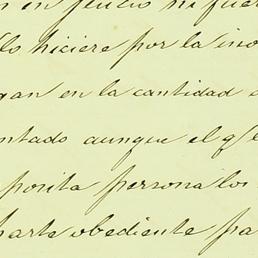 en juicio ni fuer
lo hiciere por la ino
gan en la cantidad
ntado aunque el q e
posita persona los
parte obediente pa